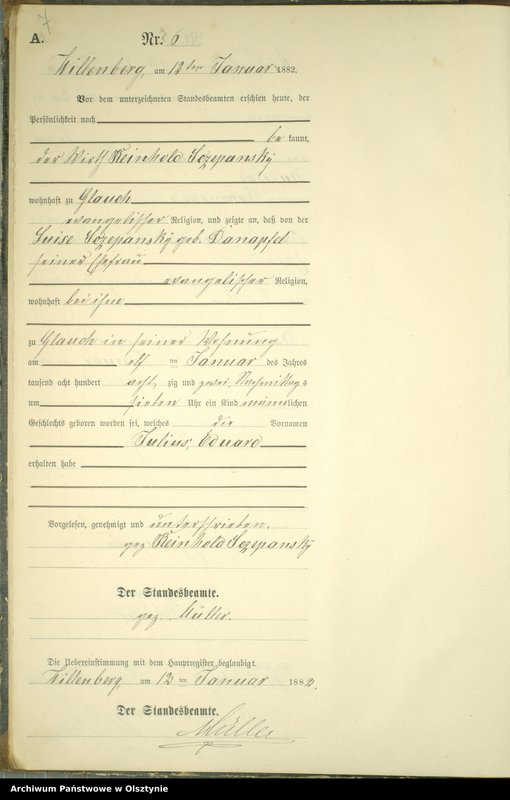 7
A.
Nr. 6
Willenberg, am 12 ten Januar 1882.
Vor dem unterzeichneten Standesbeamten erschien heute, der
Persönlichkeit nach
be kannt,
der Wirth Reinhold Sczepansky
wohnhaft zu Glauch
evangelischer Religion, und zeigte an, daß von der
Luise Sczepansky geb. Danapfel
seiner Ehefrau
evangelischer Religion,
wohnhaft bei ihm
zu Glauch in seiner Wohnung
am elf ten Januar des Jahres
tausend acht hundert acht zig und zwei, Nachmittags
um sieben Uhr ein Kind männlichen
Geschlechts geboren worden sei, welches die Vornamen
Julius, Eduard
erhalten habe
Vorgelesen, genehmigt und unterschrieben.
gez Reinhold Sczepansky
Der Standesbeamte.
gez Müller.
Die Uebereinstimmung mit dem Hauptregister beglaubigt.
Willenberg, am 12 ten Januar 1882.
Der Standesbeamte.
Müller
Archiwum Państwowe w Olsztynie